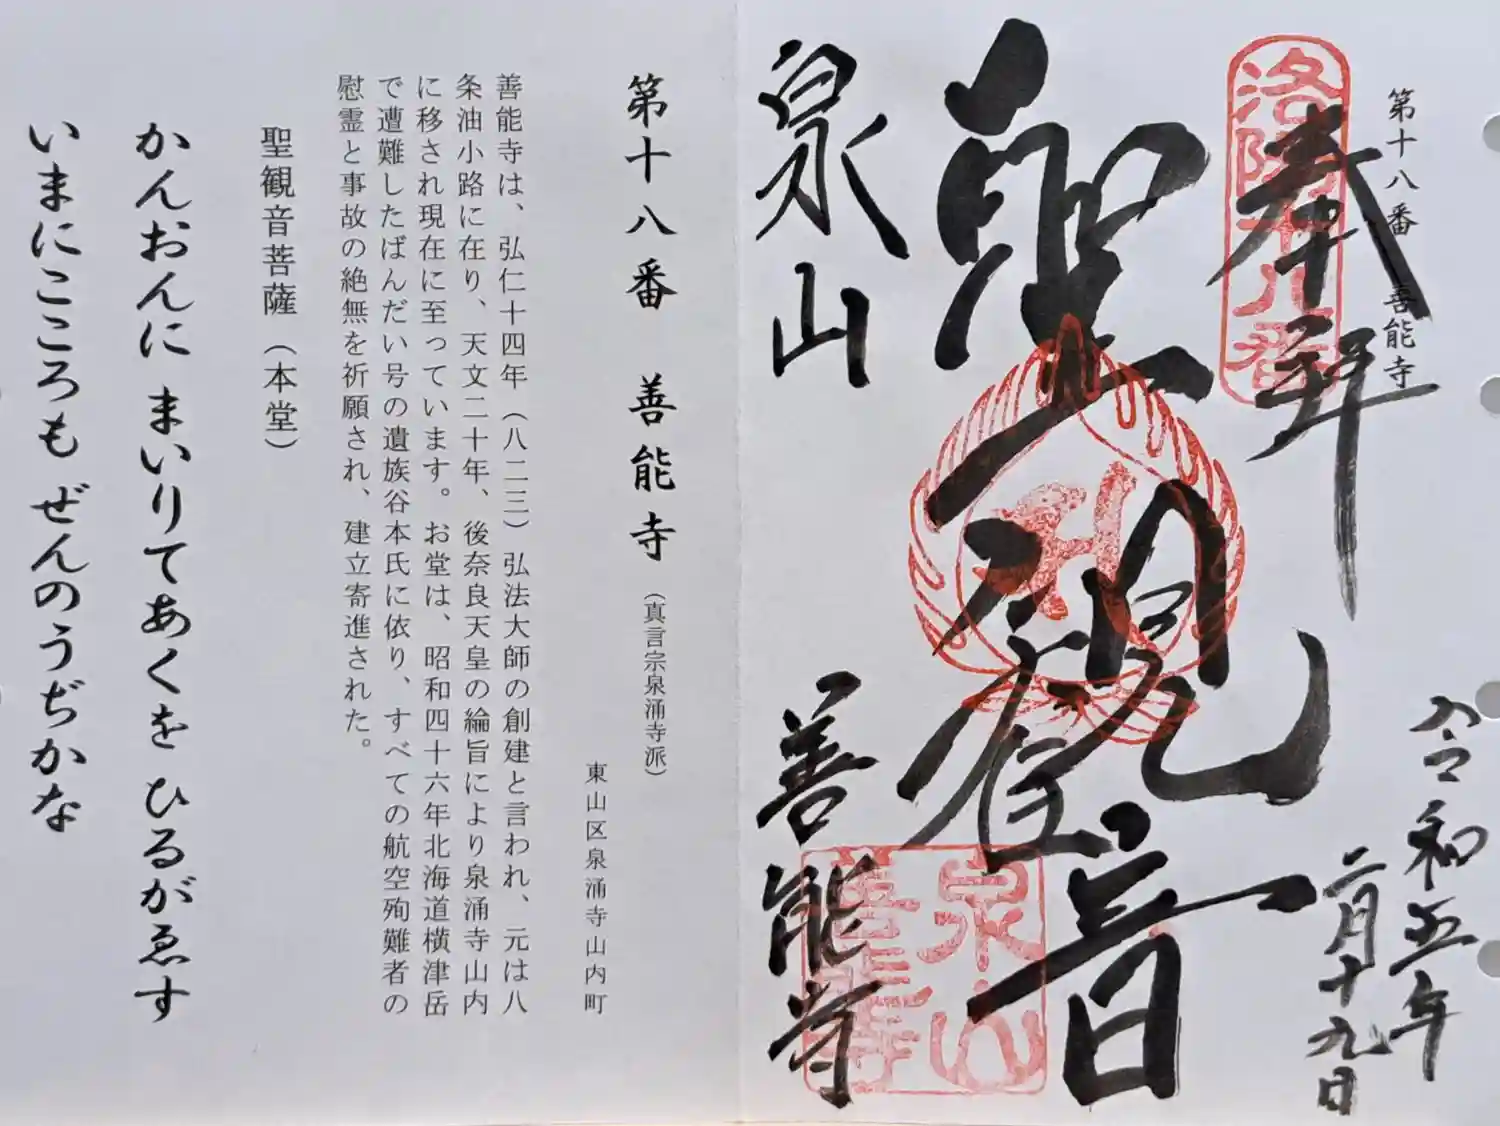 第十八番 善能寺
洛陽十八番
奉拝
令和五年
二月十九日
聖観世音
泉山
善能寺
泉山
善能寺
第十八番 善能寺（真言宗泉涌寺派）
東山区泉涌寺山内町
善能寺は、弘仁十四年（八二三）弘法大師の創建と言われ、元は八
条油小路に在り、天文二十年、後奈良天皇の綸旨により泉涌寺山内
に移され現在に至っています。お堂は、昭和四十六年北海道横津岳
で遭難したばんだい号の遺族谷本氏に依り、すべての航空殉難者の
慰霊と事故の絶無を祈願され、建立寄進された。
聖観音菩薩（本堂）
かんおんに まいりてあくを ひるがゑす
いまにこころも ぜんのうぢかな